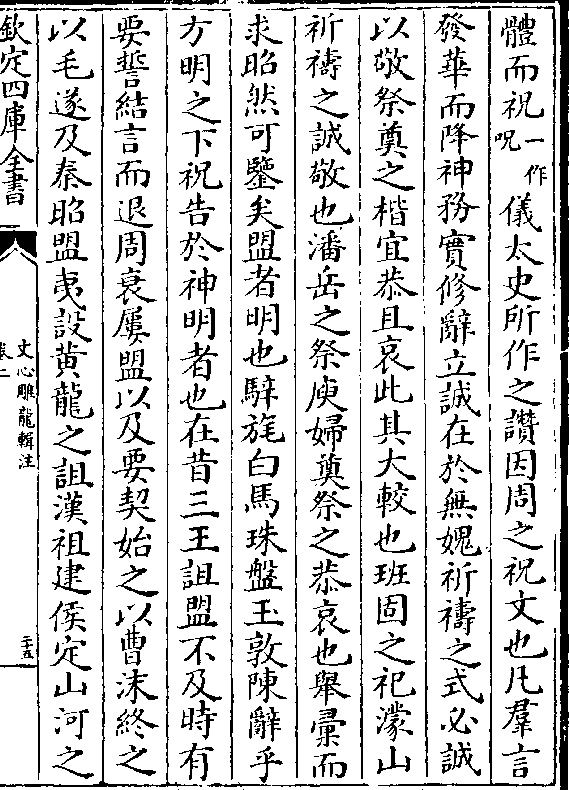 體而祝一作呪儀太史所作之讚因周之祝文也凡羣言
發華而降神務實修辭立誠在於無媿祈禱之式必誠
以敬祭奠之楷宜恭且哀此其大較也班固之祀濛山
祈禱之誠敬也潘岳之祭庾婦奠祭之恭哀也舉彙而
求昭然可鑒矣盟者明也騂旄白馬珠盤玉敦陳辭乎
方明之下祝告於神明者也在昔三王詛盟不及時有
要誓結言而退周衰屢盟以及要契始之以曹沫終之
以毛遂及秦昭盟夷設黄龍之詛漢祖建侯定山河之
欽定四庫全書
文心雕龍輯注
卷二
二十五